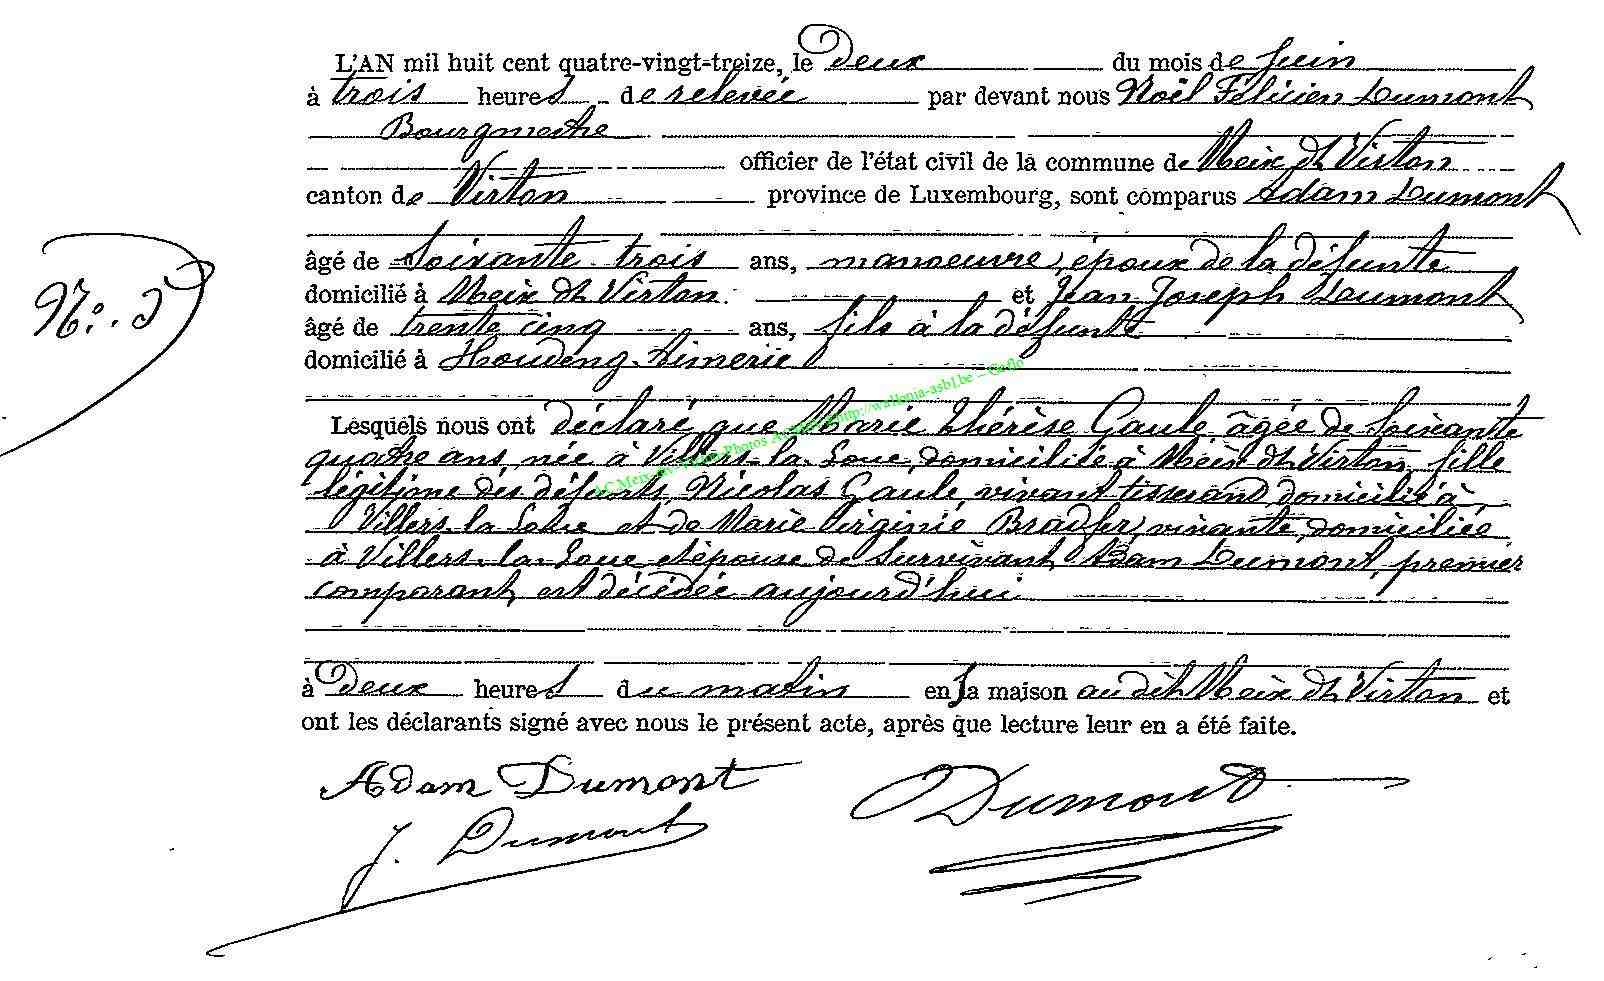 L'AN mil huit cent quatre-vingt-treize, le Deux du mois de Juin
à trois heures de relevée par devant nous Noël Félicien Dumont
Bourgmestre
officier de l'état civil de la commune de Meix dt Virton
canton de Virton province de Luxembourg, sont comparus Adam Dumont
âgé de Soixante trois ans, manoeuvre, époux de la défunte
domicilié à Meix dt Virton. et Jean Joseph Dumont
N°. 5
âgé de trente cinq ans, fils à la défunte
domicilié à Houdeng-Aimerie
Lesquels nous ont déclaré que Marie Thérèse Gaule âgée de Soixante
quatre ans, née à Villers-la-Loue, domiciliée à Meix dt Virton, fille
légitime des défunts, Nicolas Gaule, vivant tisserand domicilié à
Villers-la-Loue et de Marie Virginie Bradfer, vivante, domiciliée
à Villers-la-Loue et épouse de Survivant Adam Dumont, premier
comparant, est décédée aujourd'hui
à Deux heures du matin en sa maison au dit Meix dt Virton et
ont les déclarants signé avec nous le présent acte, après que lecture leur en a été faite.
Adam Dumont Dumont
J. Dumont
Photos http://wallonia-asbl.be